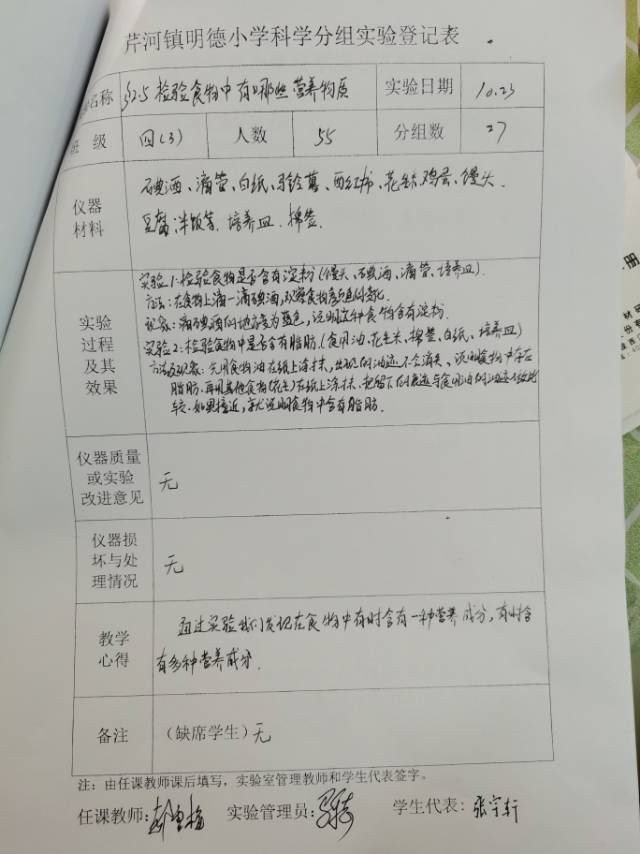 芹河镇明德小学科学分组实验登记表
名称 325 检验食物中有哪些营养物质 实验日期 10.23
班 级 四(3) 人数 55 分组数 27
仪器材料
碘酒、滴管、白纸、马铃薯、西红柿、花生米、鸡蛋、馒头、
豆腐、米饭等、培养皿、棉签、
实验过程及其效果
实验1:检验食物是否含有淀粉(馒头、碘酒、滴管、培养皿)
方法:在食物上滴一滴碘酒,观察食物颜色的变化
现象:滴碘酒的地方变为蓝色,说明这种食物含有淀粉.
实验2:检验食物中是否含有脂肪.(食用油、花生米、棉签、白纸、培养皿)
方法及现象:先用食物油在纸上涂抹,出现的油迹不会消失、说明食物中存在
脂肪.再用其他食物(花生)在纸上涂抹.把留下的痕迹与食用油的油迹做比
较.如果接近,就说明食物中含有脂肪.
仪器质量或实验改进意见
无
仪器损坏与处理情况
无
教学心得
通过实验我们发现在食物中有时含有一种营养成分,有时含
有多种营养成分.
备注 (缺席学生)无
注:由任课教师课后填写,实验室管理教师和学生代表签字。
任课教师: 实验管理员: 学生代表:张宇轩